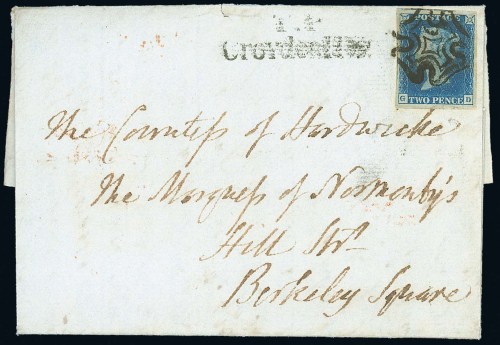 T.P
POSTAGE
G D
TWO PENCE
The Countess of Hardwicke
The Marquess of Normanby's
Hill Strt
Berkeley Square